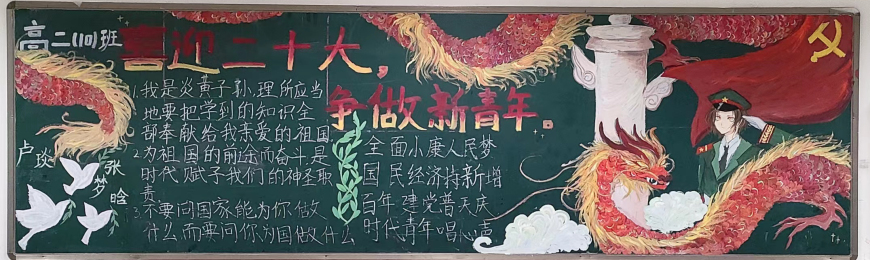 高二(10)班
喜迎二十大，
争做新青年。
1.我是炎黄子孙，理所应当
地要把学到的知识全
部奉献给我亲爱的祖国
2.为祖国的前途而奋斗是
时代赋予我们的神圣职
责
3.不要问国家能为你做
什么而要问你为国做什么
全面小康人民梦
国民经济持新增
百年建党普天庆
时代青年唱心声
张梦晗